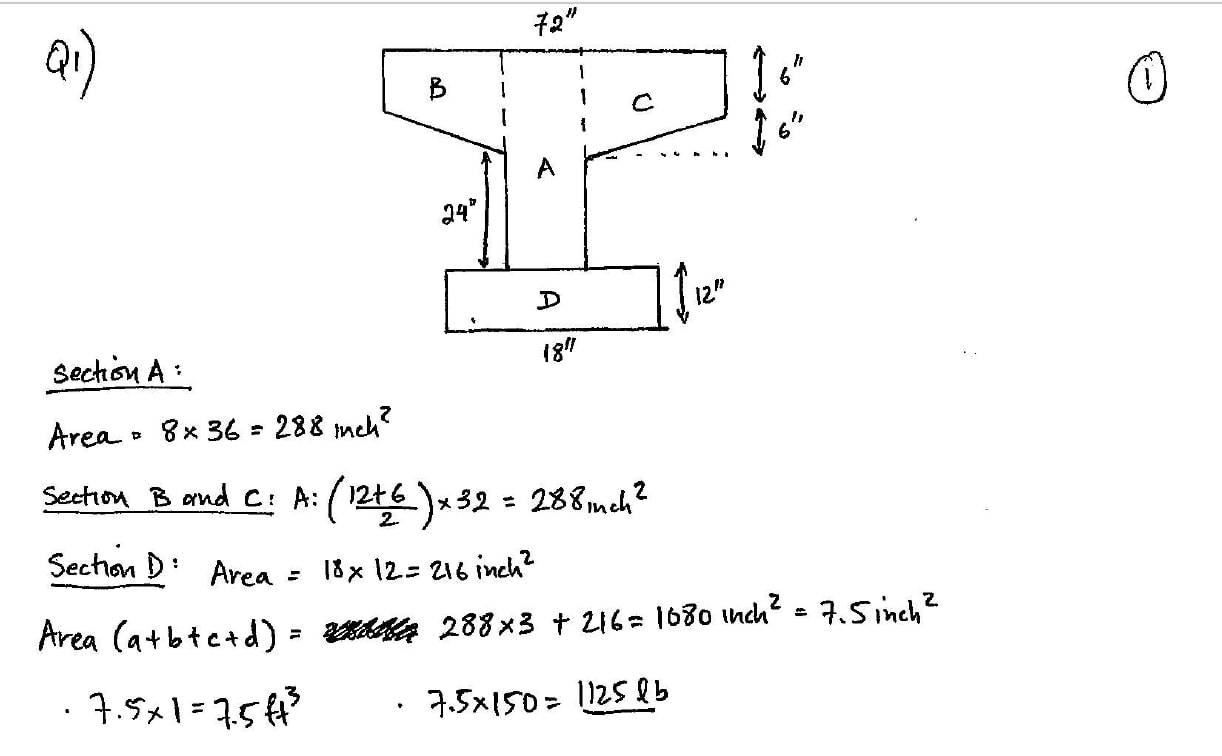 Q1)
72"
①
B
C
6"
6"
A
24"
D
12"
18"
Section A :
Area = 8 x 36 = 288 inch²
Section B and C: A: (12+6/2) x 32 = 288 inch²
Section D: Area = 18 x 12 = 216 inch²
Area (a+b+c+d) = 288x3 + 216 = 1080 inch² = 7.5 inch²
. 7.5x1 = 7.5 ft³ . 7.5x150 = 1125 lb